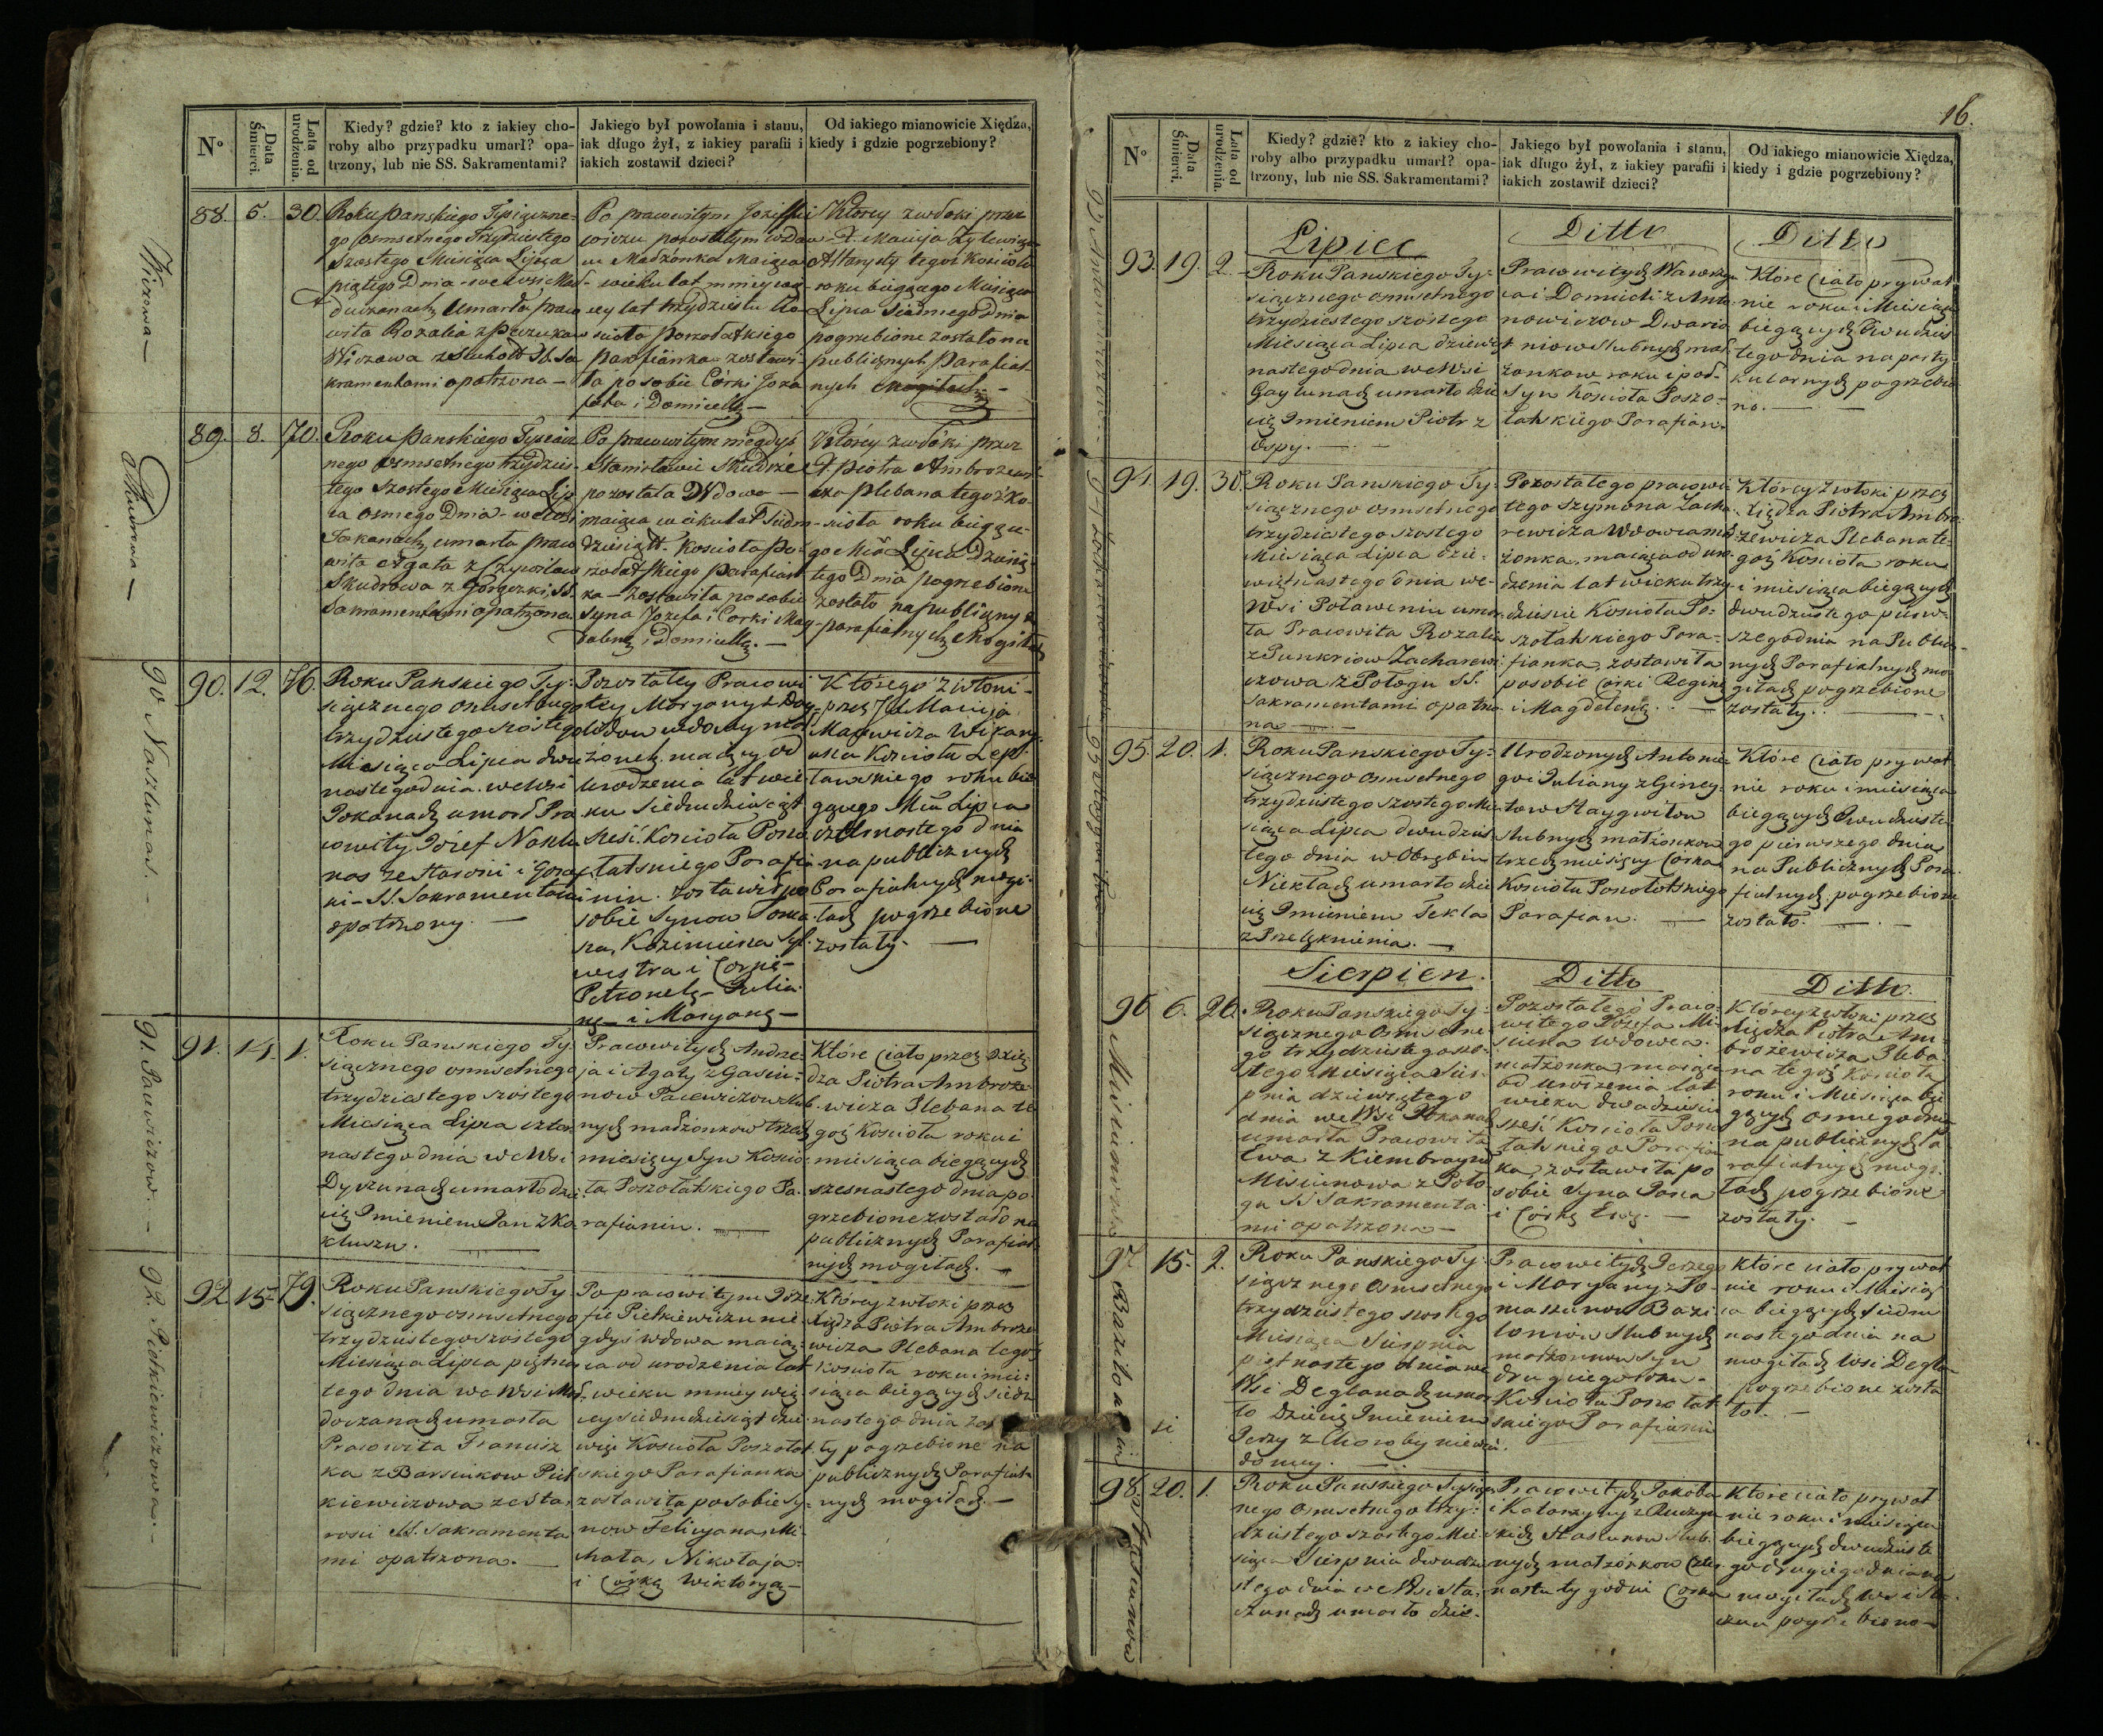 16.
Nº
Data Śmierci.
Lata od urodzenia.
Kiedy? gdzie? kto z iakiey cho-
roby albo przypadku umarł? opa-
trzony, lub nie SS. Sakramentami?
Jakiego był powołania i stanu,
iak długo żył, z iakiey parafii i
iakich zostawił dzieci?
Od iakiego mianowicie Xiędza,
kiedy i gdzie pogrzebiony?
88. 5. 30.
Roku Panskiego Tysiączne-
go osmsetnego Trzydziestego
Szostego Miesiąca Lipca
piątego Dnia we wsi
umarła praco
wita Rozalia z
Wizowa z Suchott SS. Sa
kramentami opatrzona —
Po pracowitym
pozostałym
Madżonka maiąca
wieku lat mniey wię
cey lat trzydziestu Ko
scioła Poszołatskiego
parafianka zostawi
ła po sobie Córki Joza
fatę i Domicellę —
Ktorey zwłoki przez
X. Macieja
Altarystę tegoż Koscioła
roku biegącego Miesiąca
Lipca siodmego Dnia
pogrzebione zostało na
publicznych Parafial
nych Mogiłach —
89. 8. 70.
Roku Panskiego Tysiącz
nego osmsetnego trzydzies-
tego szostego Miesiąca Lip
ca osmego Dnia we wsi
Jokanach umarła praco
wita Agata z
Skudrowa z Gorączki SS.
Sakramentami opatrzona
Po pracowitym niegdyś
Stanisławie Skudrze
pozostała Wdowa —
maiąca wieku lat siedm
dziesiąt. Koscioła Po-
szołatskiego parafian
ka — Zostawiła po sobie
Syna Jozefa i Corki
i Domicellę. —
Ktorey zwłoki przez
X. Piotra Ambrożewi-
cza Plebana tegoż Ko-
scioła roku biegące-
go Mca Lipca Dziewią-
tego Dnia pogrzebione
zostało na publicznych
parafialnych Mogiłach
90. 12. 76.
Roku Panskiego Ty-
siącznego osmsetnego
trzydziestego szostego
Miesiąca Lipca dwu
nastego dnia we wsi
Jokanach umarł Pra
cowity Józef
ze starosci i Gorącz
ki SS. Sakramentami
opatrzony. —
Pozostałey Pracowi
tey Maryanny z
wdowy
żonek maiący od
urodzenia lat wie
ku siedmdziesiąt
szesć. Koscioła Poszo
łatskiego Parafia
nin. zostawił po
sobie Synow Toma
sza, Kazimierza Syl
westra i Corki —
Petronelę — Julia
nę — i Maryannę —
Którego zwłoki —
przez Jdź Macieja
Wikary
usza Koscioła
roku bie
gącego Mca Lipca
dnia
na publicznych
Parafialnych mogi
łach pogrzebione
zostały. —
91. 14. 1.
Roku Panskiego Ty-
siącznego osmsetnego
trzydziestego szostego
Miesiąca Lipca czter
nastego dnia we Wsi
umarło dzie
cię Imieniem Jan z Ko
kluszu. —
Pracowitych Andrze-
ja i Agaty z
Pacewiczow slub
nych małżonkow trzech
miesięcy Syn Koscio
ła Poszołatskiego Pa-
rafianin. —
Które Ciało przez Xię-
dza Piotra Ambroże
wicza Plebana te
goż Koscioła roku i
miesiąca biegących
szesnastego dnia po
grzebione zostało na
publicznych Parafial
nych mogiłach. —
92. 15. 79.
Roku Panskiego Ty-
siącznego osmsetnego
trzydziestego szostego
Miesiąca Lipca piętnas
tego dnia we wsi
umarła
Pracowita Francisz
ka z Piet
kiewiczowa ze sta-
rosci SS. Sakramenta
mi opatrzona. —
Po pracowitym Joze
fie Pietkiewiczu nie
gdyś wdowa maiąc
ca od urodzenia lat
wieku mniey wię
cey siedmdziesiąt dzie
więć Koscioła Poszołat
skiego Parafianka
zostawiła po sobie Sy-
now Felicyana, Mi
chała, Nikołaja
i Córkę Wiktoryą —
Ktorey zwłoki przez
Xiędza Piotra Ambroże
wicza Plebana tegoż
Koscioła roku i mie-
siąca biegących siedm
nastego dnia zosta
ły pogrzebione na
publicznych Parafial
nych mogiłach. —
Wizowa —
Skudrowa —
91. Pacewiczow. —
92. Pietkiewiczowa. —
Nº
Data Śmierci.
Lata od urodzenia.
Kiedy? gdzie? kto z iakiey cho-
roby albo przypadku umarł? opa-
trzony, lub nie SS. Sakramentami?
Jakiego był powołania i stanu,
iak długo żył, z iakiey parafii i
iakich zostawił dzieci?
Od iakiego mianowicie Xiędza,
kiedy i gdzie pogrzebiony?
Lipiec
Ditto
Ditto
93. 19. 2.
Roku Panskiego Ty-
siącznego osmsetnego
trzydziestego szostego
Miesiąca Lipca dziewięt
nastego dnia we Wsi
umarło dzie
cię Imieniem Piotr z
Ospy. —
Pracowitych Wawrzyn
ca i Domicelli z Anto
nowiczow
Slubnych mał
żonkow roku i poł-
Syn Koscioła Poszo-
łatskiego Parafian.
Które Ciało prywat
nie roku i Miesiąca
biegących Dwudzies
tego dnia na party
kularnych pogrzebio
no. —
94. 19. 30.
Roku Panskiego Ty-
siącznego osmsetnego
trzydziestego szostego
Miesiąca Lipca dzie-
więtnastego dnia we
Wsi Poławeniu umar
ła Pracowita Rozalia
z Zacharewi
czowa z Połogu SS.
Sakramentami opatrzo
na —
Pozostałego pracowi
tego Szymona Zacha
rewicza Wdowca mał
żonka, maiąca od uro
dzenia lat wieku trzy
dziescie Koscioła Po-
szołatskiego Para-
fianka, zostawiła
po sobie Corki Reginę
i Magdalenę. —
Którey zwłoki przez
Xiędza Piotra Ambro
żewicza Plebana te-
goż Koscioła roku
i miesiąca biegących
dwudziestego pierw-
szego dnia na Publicz-
nych Parafialnych mo
giłach pogrzebione
zostały. —
95. 20. 1.
Roku Panskiego Ty-
siącznego osmsetnego
trzydziestego szostego Mie
siąca Lipca dwudzies
tego dnia w Obrębiu
umarło dzie
cię Imieniem Tekla
z Przelęknienia. —
Urodzonych Antonie
go i Juliany z
slubnych małżonkow
trzech miesięcy Corka
Koscioła Poszołatskiego
Parafian. —
Które Ciało prywat
nie roku i miesiąca
biegących Dwudzieste
go pierwszego dnia
na Publicznych Para-
fialnych pogrzebione
zostało. —
Sierpien.
Ditto
Ditto.
96 6. 26.
Roku Panskiego Ty-
siącznego Osmsetne
go trzydziestego szo-
stego Miesiąca Sier
pnia dziewiątego
dnia we Wsi Jokanach
umarła Pracowita
Ewa z
z Poło
gu SS Sakramenta
mi opatrzona —
Pozostałego Praco
witego Józefa
wdowca
małżonka, maiąca
od urodzenia lat
wieku dwadziescia
szesć Koscioła Poszo
łatskiego Parafian
ka, zostawiła po
sobie Syna Jana
i Córkę Ewę. —
Którey zwłoki przez
Xiędza Piotra Am-
brożewicza Pleba
na tegoż Koscioła
roku i Miesiąca bie
gących osmego dnia
na publicznych Pa
rafialnych mogi
łach pogrzebione
zostały. —
97 15. 2.
Roku Panskiego Ty-
siącznego Osmsetnego
trzydziestego szostego
Miesiąca Sierpnia
piętnastego dnia we
Wsi Deglanach umar
ło Dziecię Imieniem
Jerzy z Choroby niewia
domey. —
Pracowitych Jerzego
i Maryanny z
Slubnych
małżonkow Syn
drugiego roku
Koscioła Poszołat
skiego Parafianin
które ciało prywat
nie roku i Miesią
ca biegących siedm
nastego dnia na
mogiłach Wsi Degla
pogrzebione zosta
ło. —
98. 20. 1.
Roku Panskiego Tysiącz
nego Osmsetnego trzy-
dziestego szostego Mie
siąca Sierpnia dwudzie
stego dnia we Wsi
umarło dzie-
Pracowitych Jakoba
i Katarzyny z
slub-
nych małżonkow
tygodni Corka
Ktore ciało prywat
nie roku i miesiąca
biegących dwudzieste
go drugiego dnia na
mogiłach wsi
pogrzebiono —